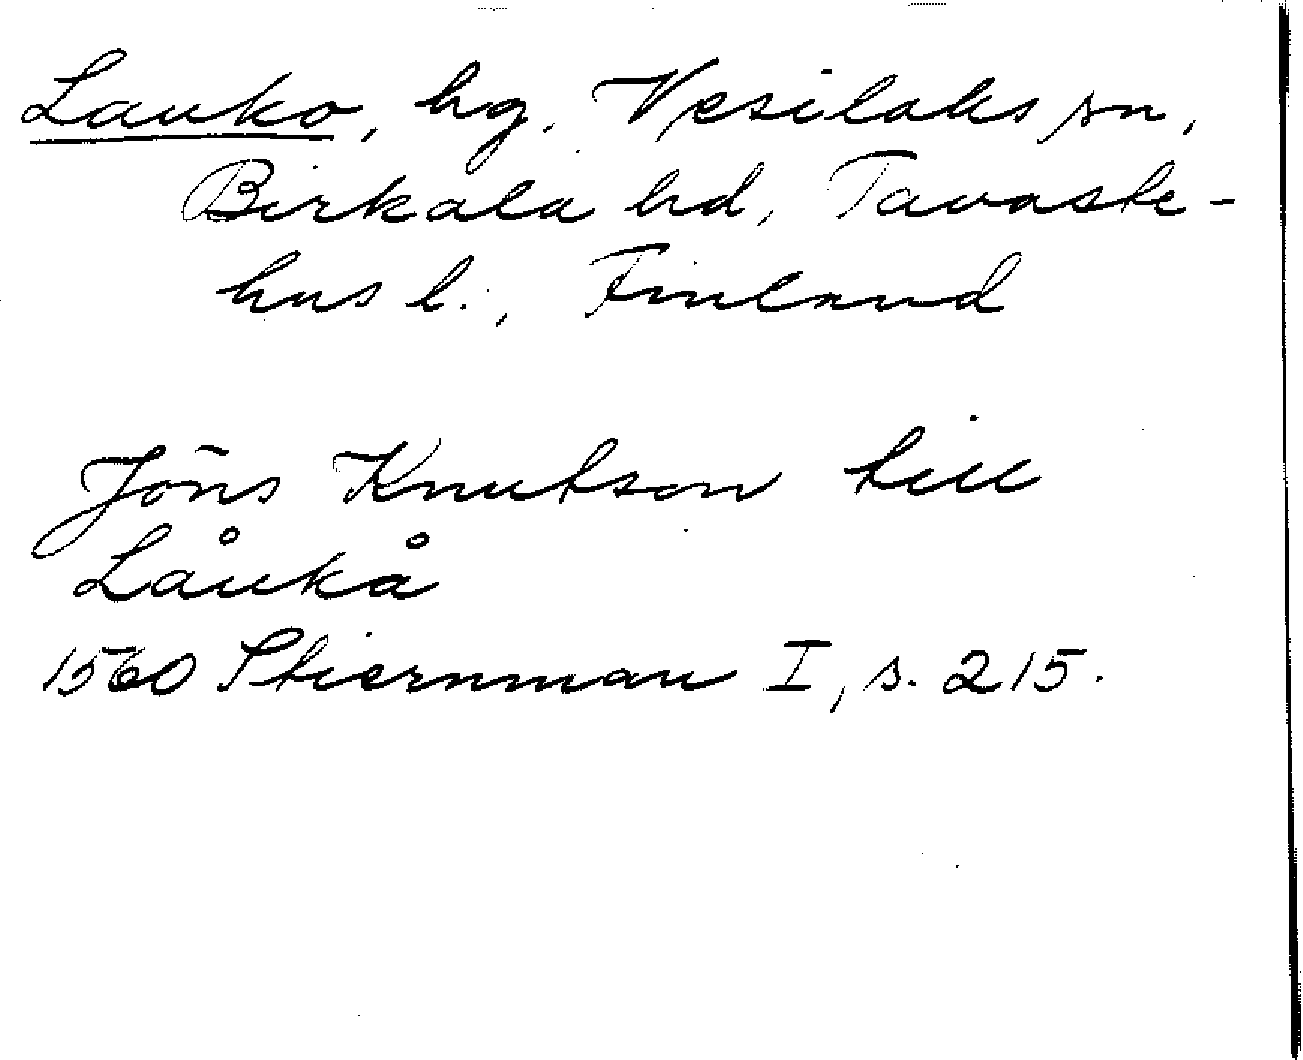 Lauko, hg. Vesilaks sn,
Birkala hd, Tavaste-
hus l., Finland
Jöns Knutson till
Låukå
1560 Stiernman I, s. 215.